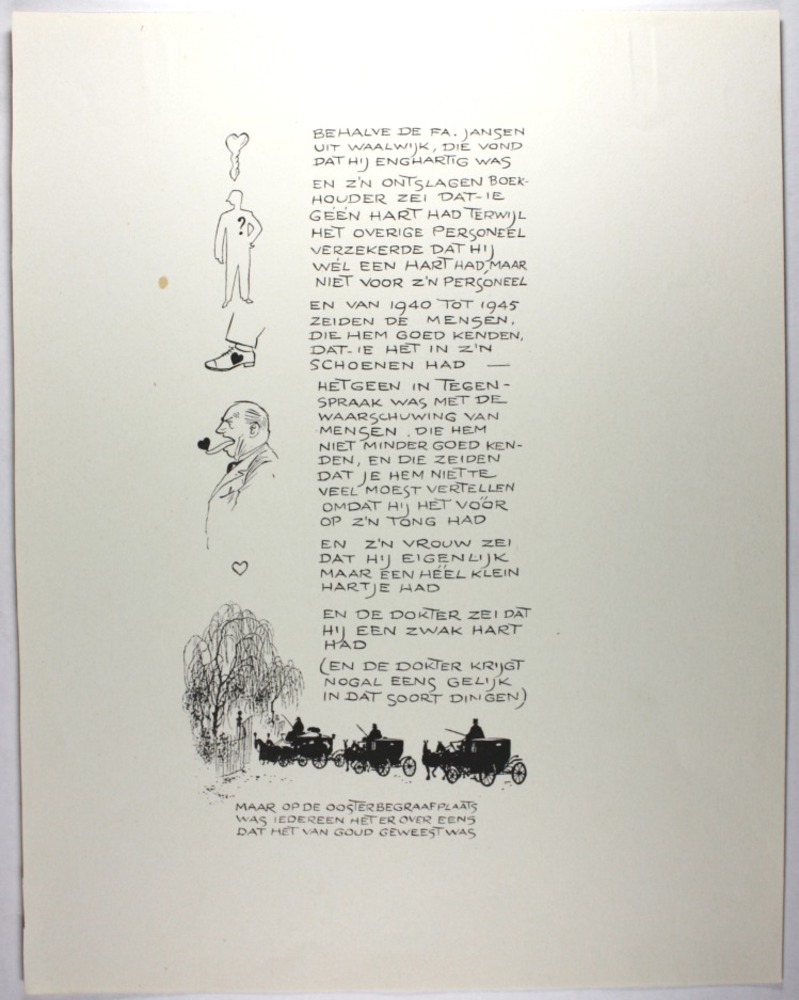 BEHALVE DE FA. JANSEN
UIT WAALWIJK, DIE VOND
DAT HIJ ENGHARTIG WAS
EN Z'N ONTSLAGEN BOEK-
HOUDER ZEI DAT-IE
GÉÉN HART HAD TERWIJL
HET OVERIGE PERSONEEL
VERZEKERDE DAT HIJ
WÉL EEN HART HAD, MAAR
NIET VOOR Z'N PERSONEEL
?
EN VAN 1940 TOT 1945
ZEIDEN DE MENSEN,
DIE HEM GOED KENDEN,
DAT-IE HET IN Z'N
SCHOENEN HAD —
HETGEEN IN TEGEN-
SPRAAK WAS MET DE
WAARSCHUWING VAN
MENSEN, DIE HEM
NIET MINDER GOED KEN-
DEN, EN DIE ZEIDEN
DAT JE HEM NIET TE
VEEL MOEST VERTELLEN
OMDAT HIJ HET VÓÓR
OP Z'N TONG HAD
EN Z'N VROUW ZEI
DAT HIJ EIGENLIJK
MAAR EEN HÉÉL KLEIN
HARTJE HAD
EN DE DOKTER ZEI DAT
HIJ EEN ZWAK HART
HAD
(EN DE DOKTER KRIJGT
NOGAL EENS GELIJK
IN DAT SOORT DINGEN)
MAAR OP DE OOSTERBEGRAAFPLAATS
WAS IEDEREEN HET ER OVER EENS
DAT HET VAN GOUD GEWEEST WAS